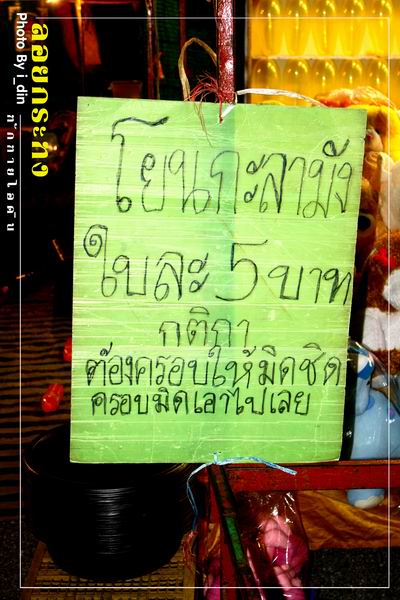 ลอยกระทง
Photo By i_din
โยนกะลามัง
ใบละ 5 บาท
กติกา
ต้องครอบให้มิดชิด
ครอบมิดเอาไปเลย